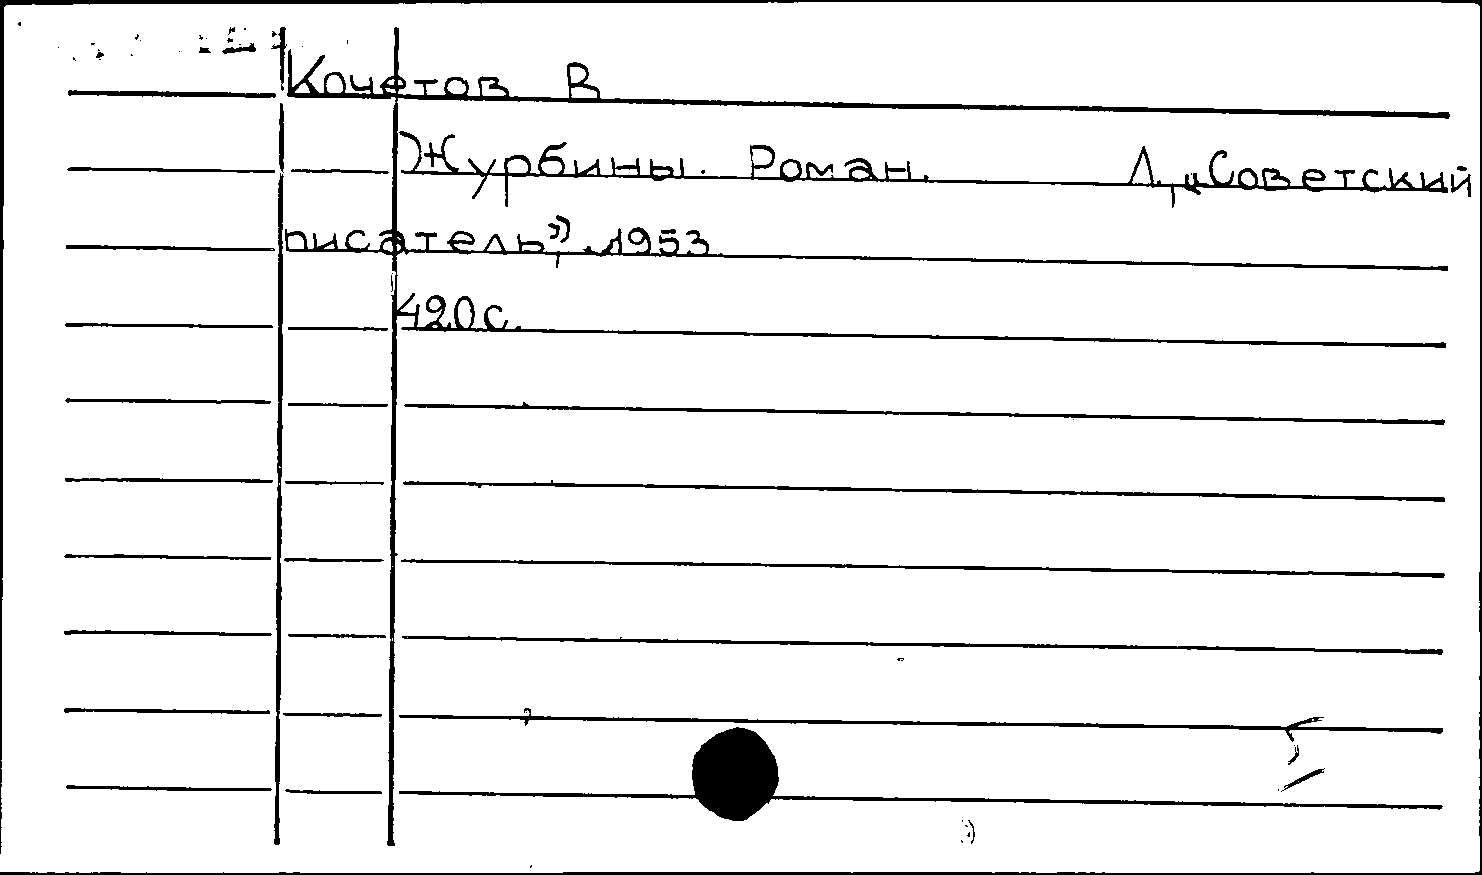 Кочетов В
Журбины. Роман. Л., „Советский
писатель”, 1953
420 с.
5